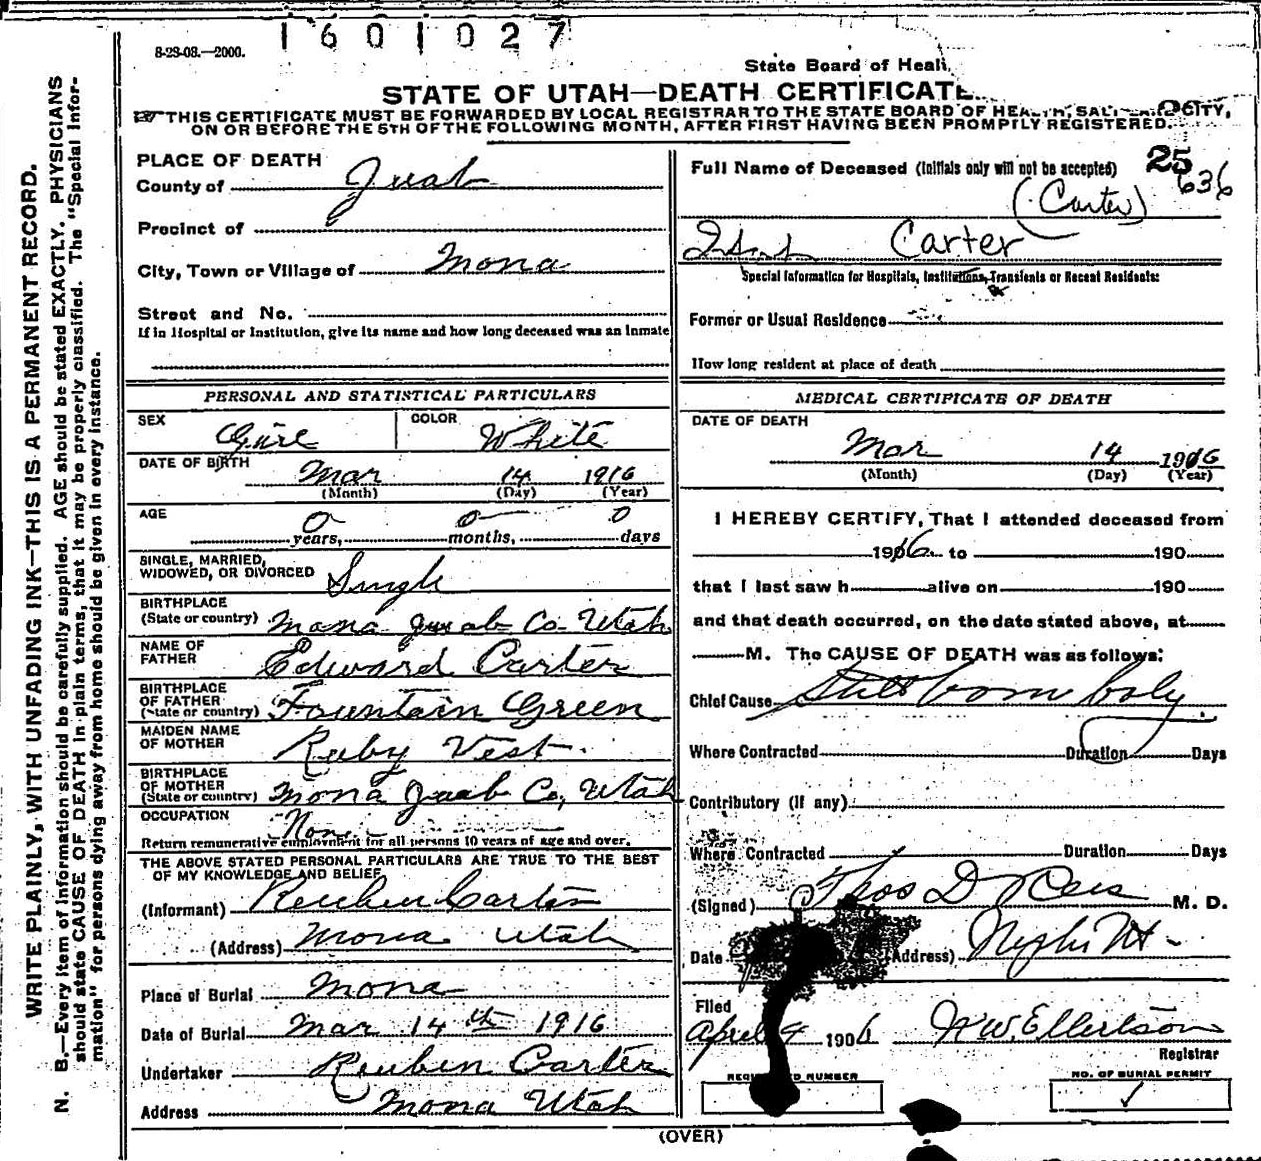 1601027
8-28-08.—2000.
State Board of Heal
STATE OF UTAH—DEATH CERTIFICATE
THIS CERTIFICATE MUST BE FORWARDED BY LOCAL REGISTRAR TO THE STATE BOARD OF HEALTH, SALT LAKE CITY,
ON OR BEFORE THE 5TH OF THE FOLLOWING MONTH, AFTER FIRST HAVING BEEN PROMPTLY REGISTERED.
WRITE PLAINLY, WITH UNFADING INK—THIS IS A PERMANENT RECORD.
N. B.—Every item of information should be carefully supplied. AGE should be stated EXACTLY. PHYSICIANS
should state CAUSE OF DEATH in plain terms, that it may be properly classified. The "Special Infor-
mation" for persons dying away from home should be given in every instance.
PLACE OF DEATH
County of Juab
Precinct of
City, Town or Village of Mona
Street and No.
If in Hospital or Institution, give its name and how long deceased was an inmate
PERSONAL AND STATISTICAL PARTICULARS
SEX Girl COLOR White
DATE OF BIRTH Mar 14 1916
(Month) (Day) (Year)
AGE 0 years, 0 months, 0 days
SINGLE, MARRIED,
WIDOWED, OR DIVORCED Single
BIRTHPLACE
(State or country) Mona Juab Co- Utah
NAME OF
FATHER Edward Carter
BIRTHPLACE
OF FATHER
(State or country) Fountain Green
MAIDEN NAME
OF MOTHER Ruby Vest.
BIRTHPLACE
OF MOTHER
(State or country) Mona Juab Co, Utah
OCCUPATION None
Return remunerative employment for all persons 10 years of age and over.
THE ABOVE STATED PERSONAL PARTICULARS ARE TRUE TO THE BEST
OF MY KNOWLEDGE AND BELIEF
(Informant) Reuben Carter
(Address) Mona Utah
Place of Burial Mona
Date of Burial Mar 14th 1916
Undertaker Reuben Carter
Address Mona Utah
Full Name of Deceased (Initials only will not be accepted) 25
636
(Carter)
Carter
Special Information for Hospitals, Institutions, Transients or Recent Residents:
Former or Usual Residence
How long resident at place of death
MEDICAL CERTIFICATE OF DEATH
DATE OF DEATH
Mar 14 1916
(Month) (Day) (Year)
I HEREBY CERTIFY, That I attended deceased from
1916 to 190
that I last saw h alive on 190
and that death occurred, on the date stated above, at
M. The CAUSE OF DEATH was as follows:
Chief Cause Still born baby
Where Contracted Duration Days
Contributory (if any)
Where Contracted Duration Days
(Signed) Thos D Rees M. D.
Date (Address) Nephi Ut-
Filed
April 4 1906 W.W. Ellertson
Registrar
REGISTERED NUMBER
NO. OF BURIAL PERMIT
(OVER)